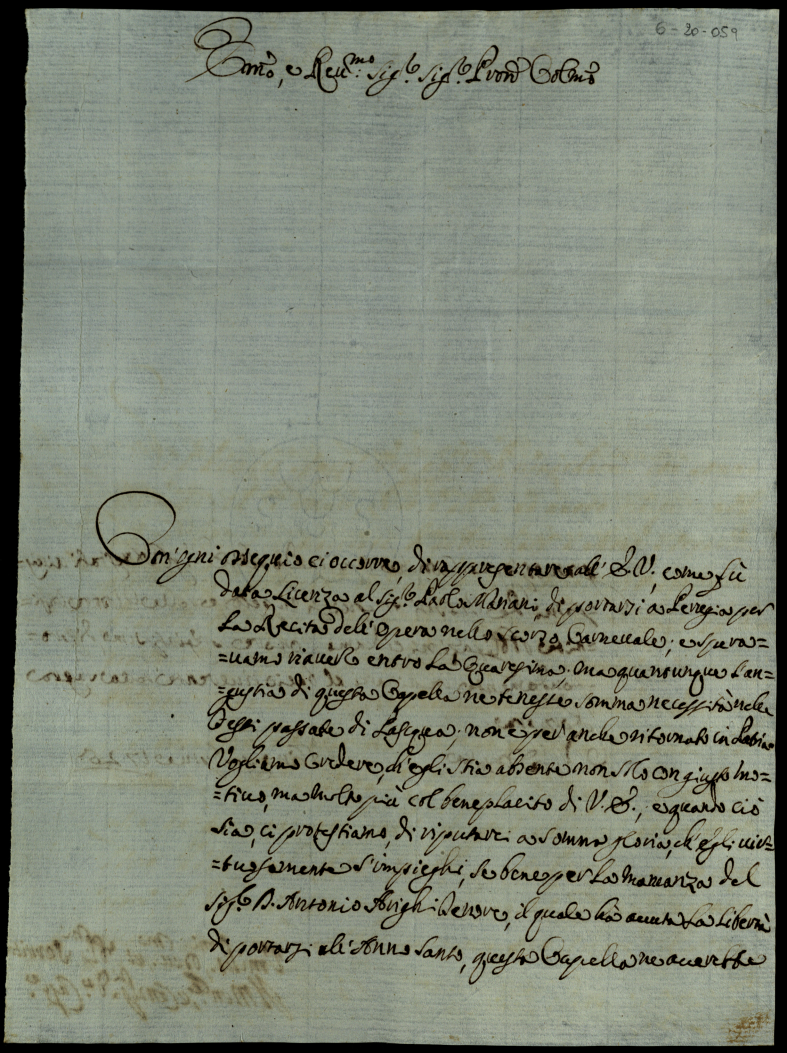 6-20-059
Emo, e Reumo: Sigr. Sigr. Pron Colmo
Con ogni ossequio ci occorre, di rappresentare all' E.V., come fù
data Licenza al Sigr. Paolo Mariani, di portarsi a Perugia per
La Recita dell' Opera nello scorso Carneuale; e spera=
=uamo riauerlo entro La Quaresima; ma quantunque L'an=
=gustia di questa Capella ne tenesse somma necessità nelle
Feste passate di Pasqua; non è però anche ritornato in
Vogliamo Credere, ch'egli stia absente non solo con giusto mo=
=tiuo, ma molto più col beneplacito di V.E.; e quando ciò
sia, ci protestiamo, di riputarci a somma gloria, ch'egli uir=
=tuosamente s'impieghi, se bene per La mancanza del
Sigr. D. Antonio Arighi Tenore, il quale hà auuta La Libertà
di portarsi all' Anno Santo, questa Capella ne auerebbe